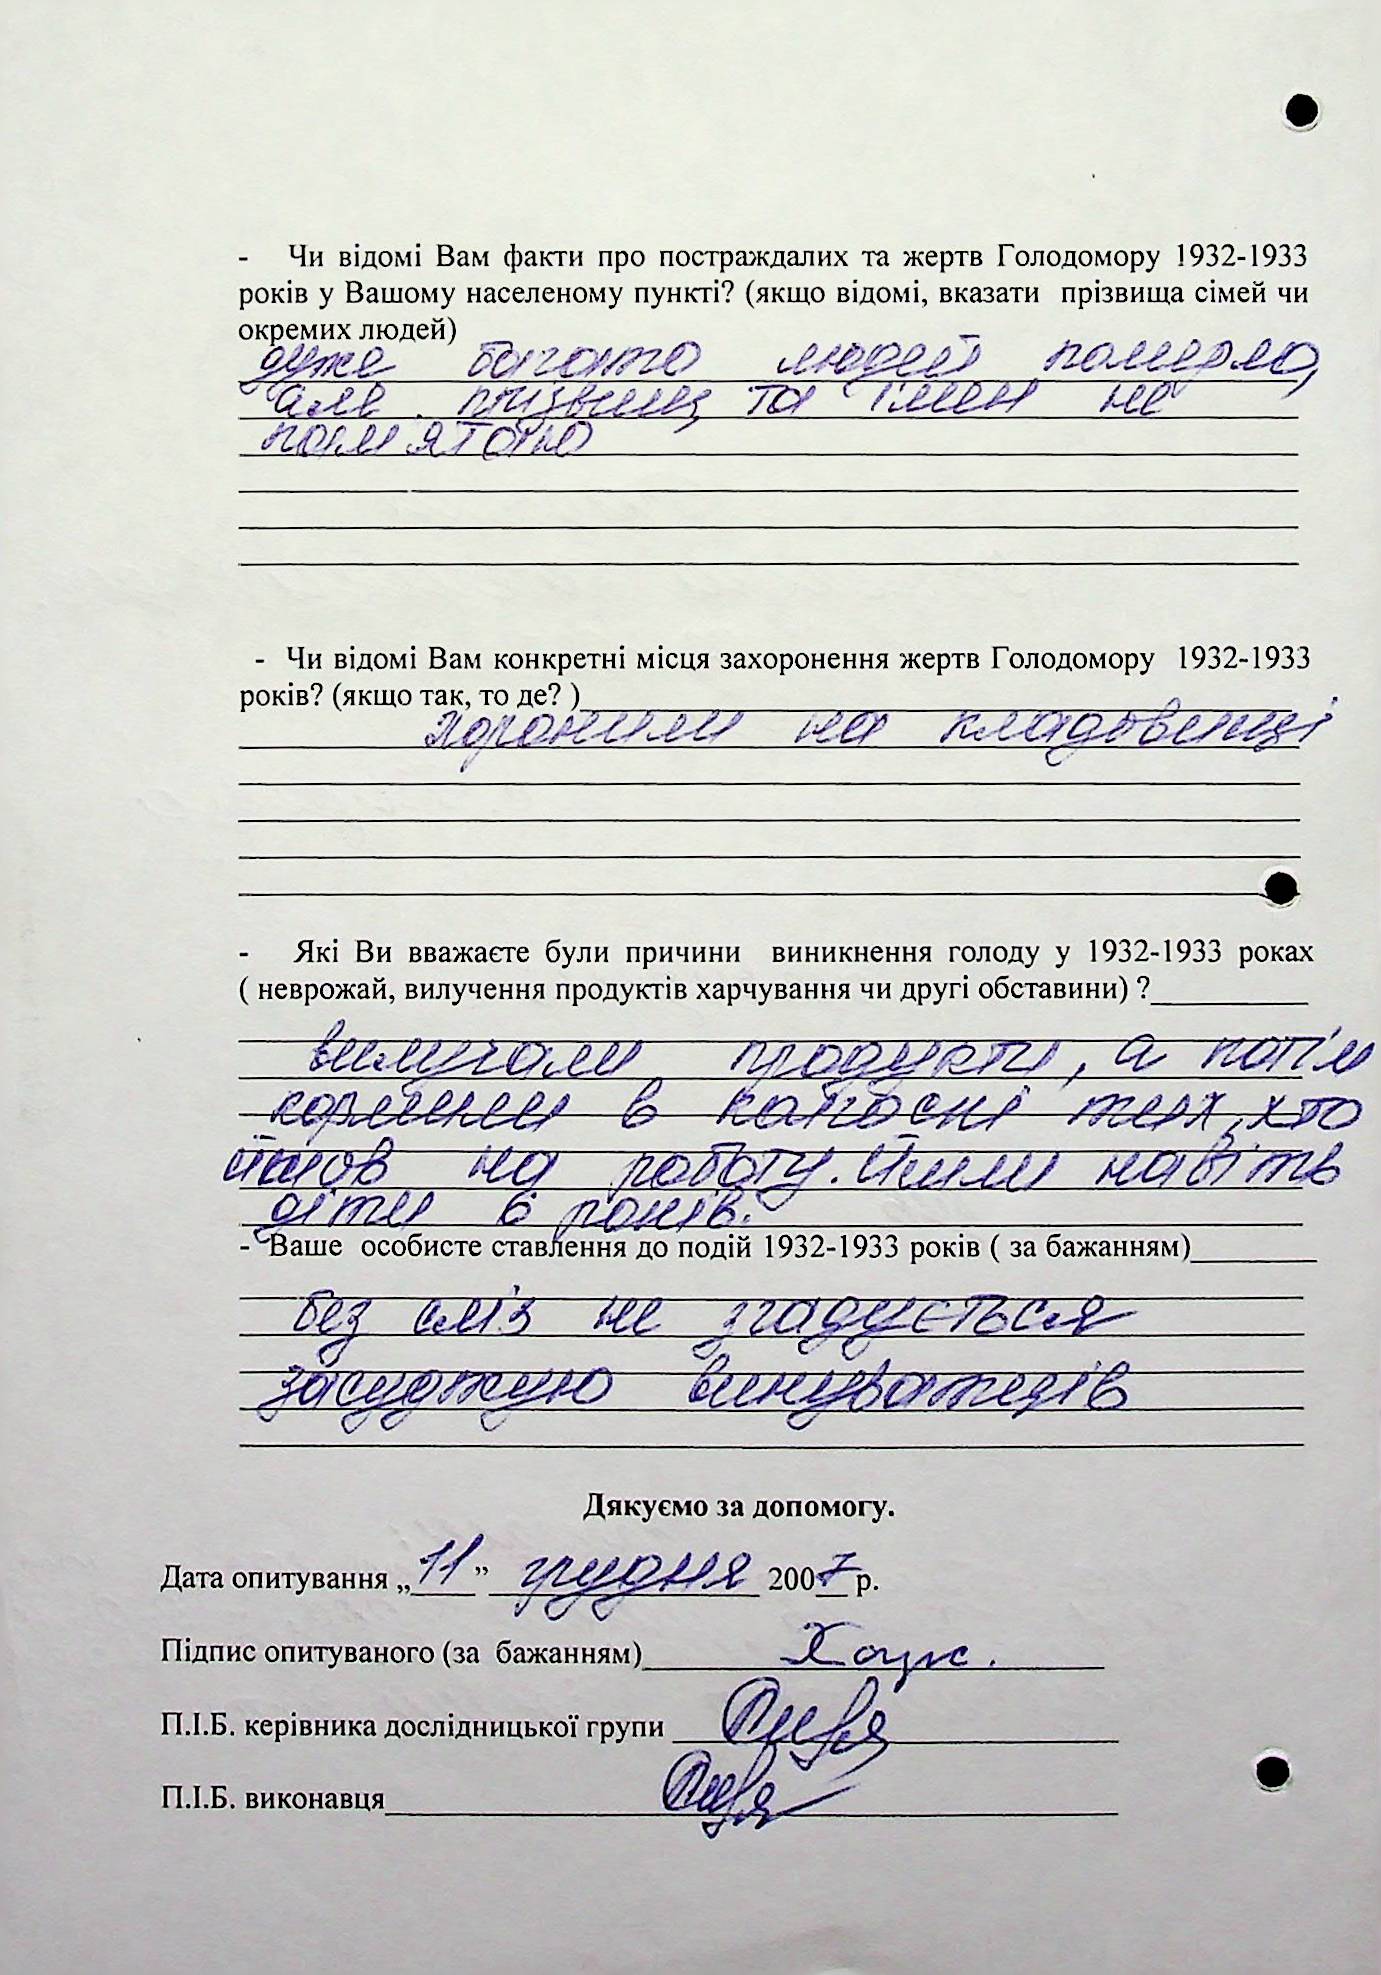 - Чи відомі Вам факти про постраждалих та жертв Голодомору 1932-1933
років у Вашому населеному пункті? (якщо відомі, вказати прізвища сімей чи
окремих людей)
дуже багато людей померло,
але прізвищ та імен не
пам'ятаю
- Чи відомі Вам конкретні місця захоронення жертв Голодомору 1932-1933
років? (якщо так, то де? )
хоронили на кладовищі
- Які Ви вважаєте були причини виникнення голоду у 1932-1933 роках
( неврожай, вилучення продуктів харчування чи другі обставини) ?
вилучали продукти, а потім
кормили в колгоспі тих, хто
йшов на роботу. Йшли навіть
діти 6 років.
- Ваше особисте ставлення до подій 1932-1933 років ( за бажанням)
без сліз не згадується
засуджую винуватців
Дякуємо за допомогу.
Дата опитування „11” грудня 2007 р.
Підпис опитуваного (за бажанням)
П.І.Б. керівника дослідницької групи
П.І.Б. виконавця